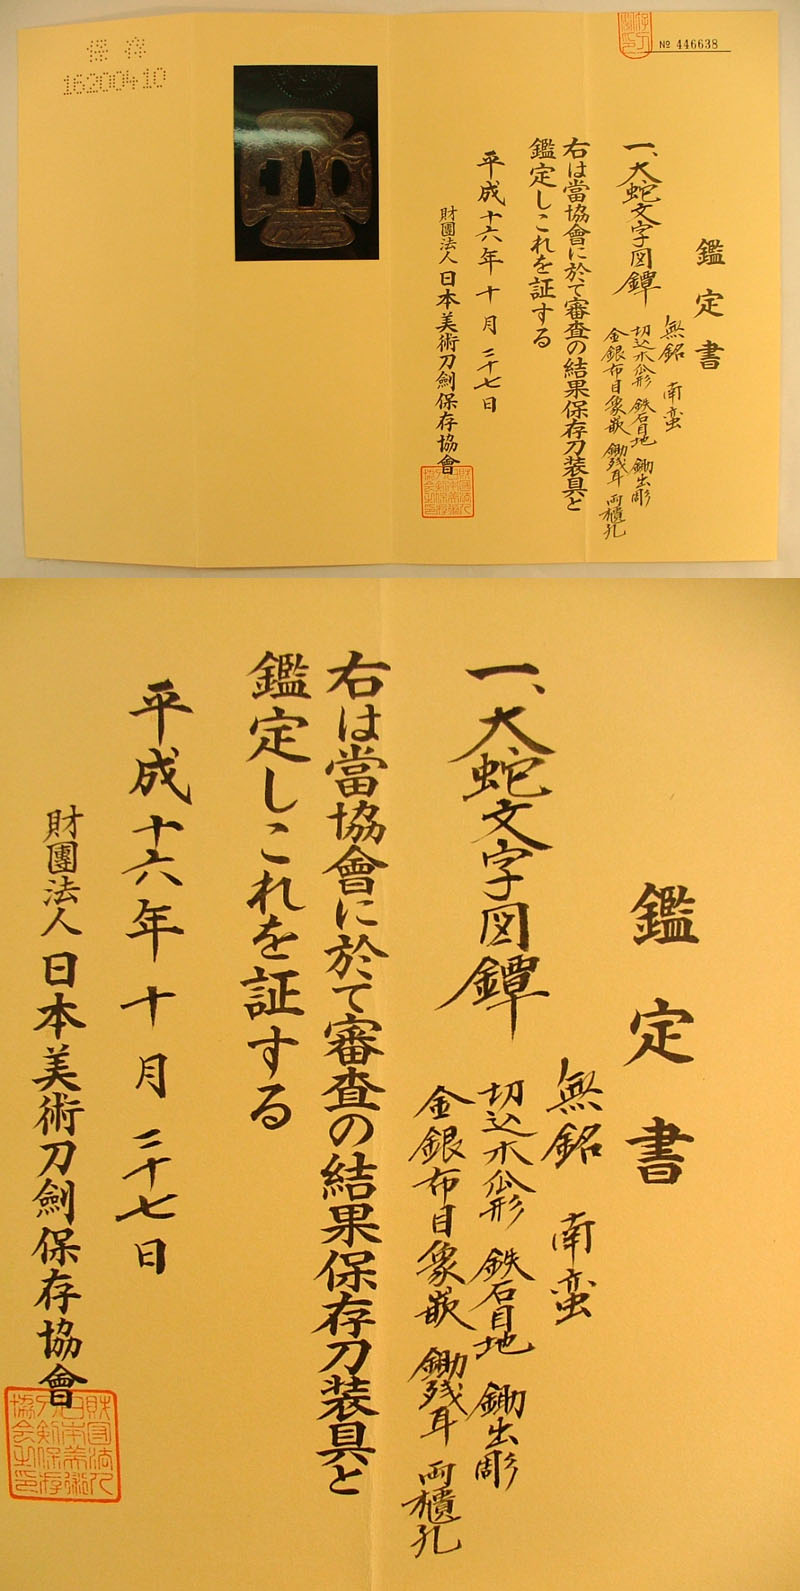 保存
16200410
№ 446638
鑑定書
無銘 南蛮
一、大蛇文字図鐔
切込木瓜形 鉄石目地 鋤出彫
金銀布目象嵌 鋤残耳 両櫃孔
右は當協會に於て審査の結果保存刀装具と
鑑定しこれを証する
平成十六年十月二十七日
財團法人日本美術刀劍保存協會
鑑定書
無銘 南蛮
一、大蛇文字図鐔
切込木瓜形 鉄石目地 鋤出彫
金銀布目象嵌 鋤残耳 両櫃孔
右は當協會に於て審査の結果保存刀装具と
鑑定しこれを証する
平成十六年十月二十七日
財團法人日本美術刀劍保存協會